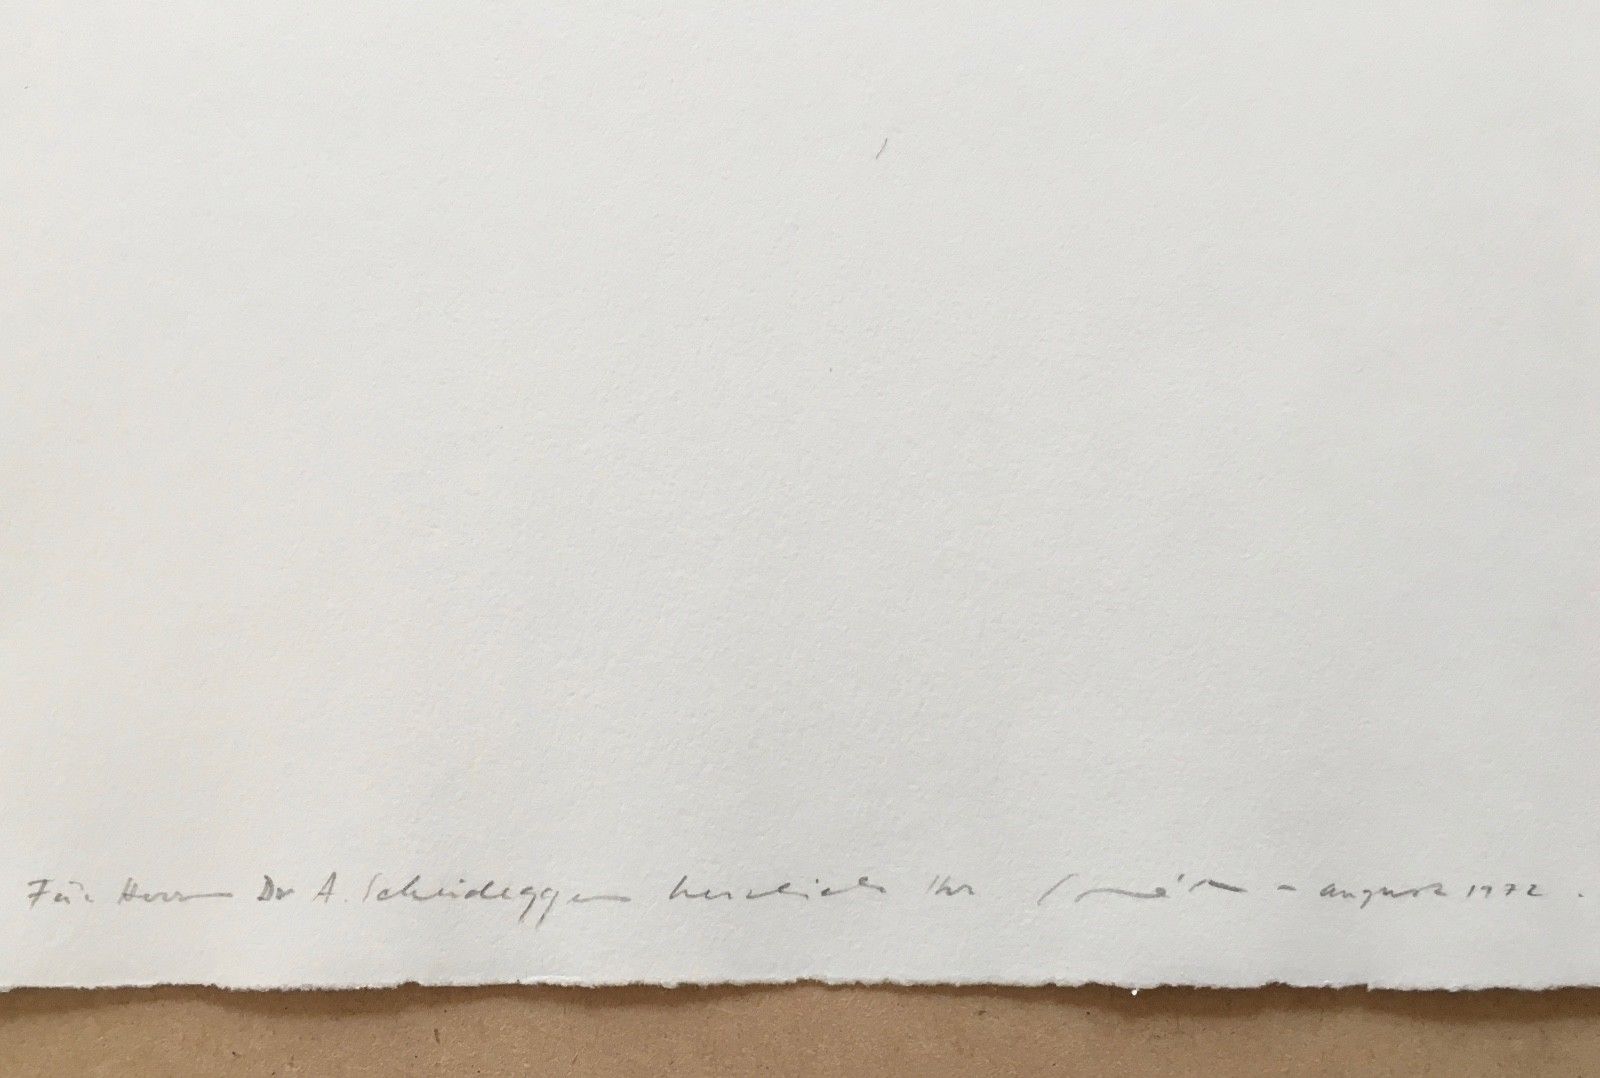 Für Herrn Dr A. Scheidegger herzlich Ihr – august 1972.